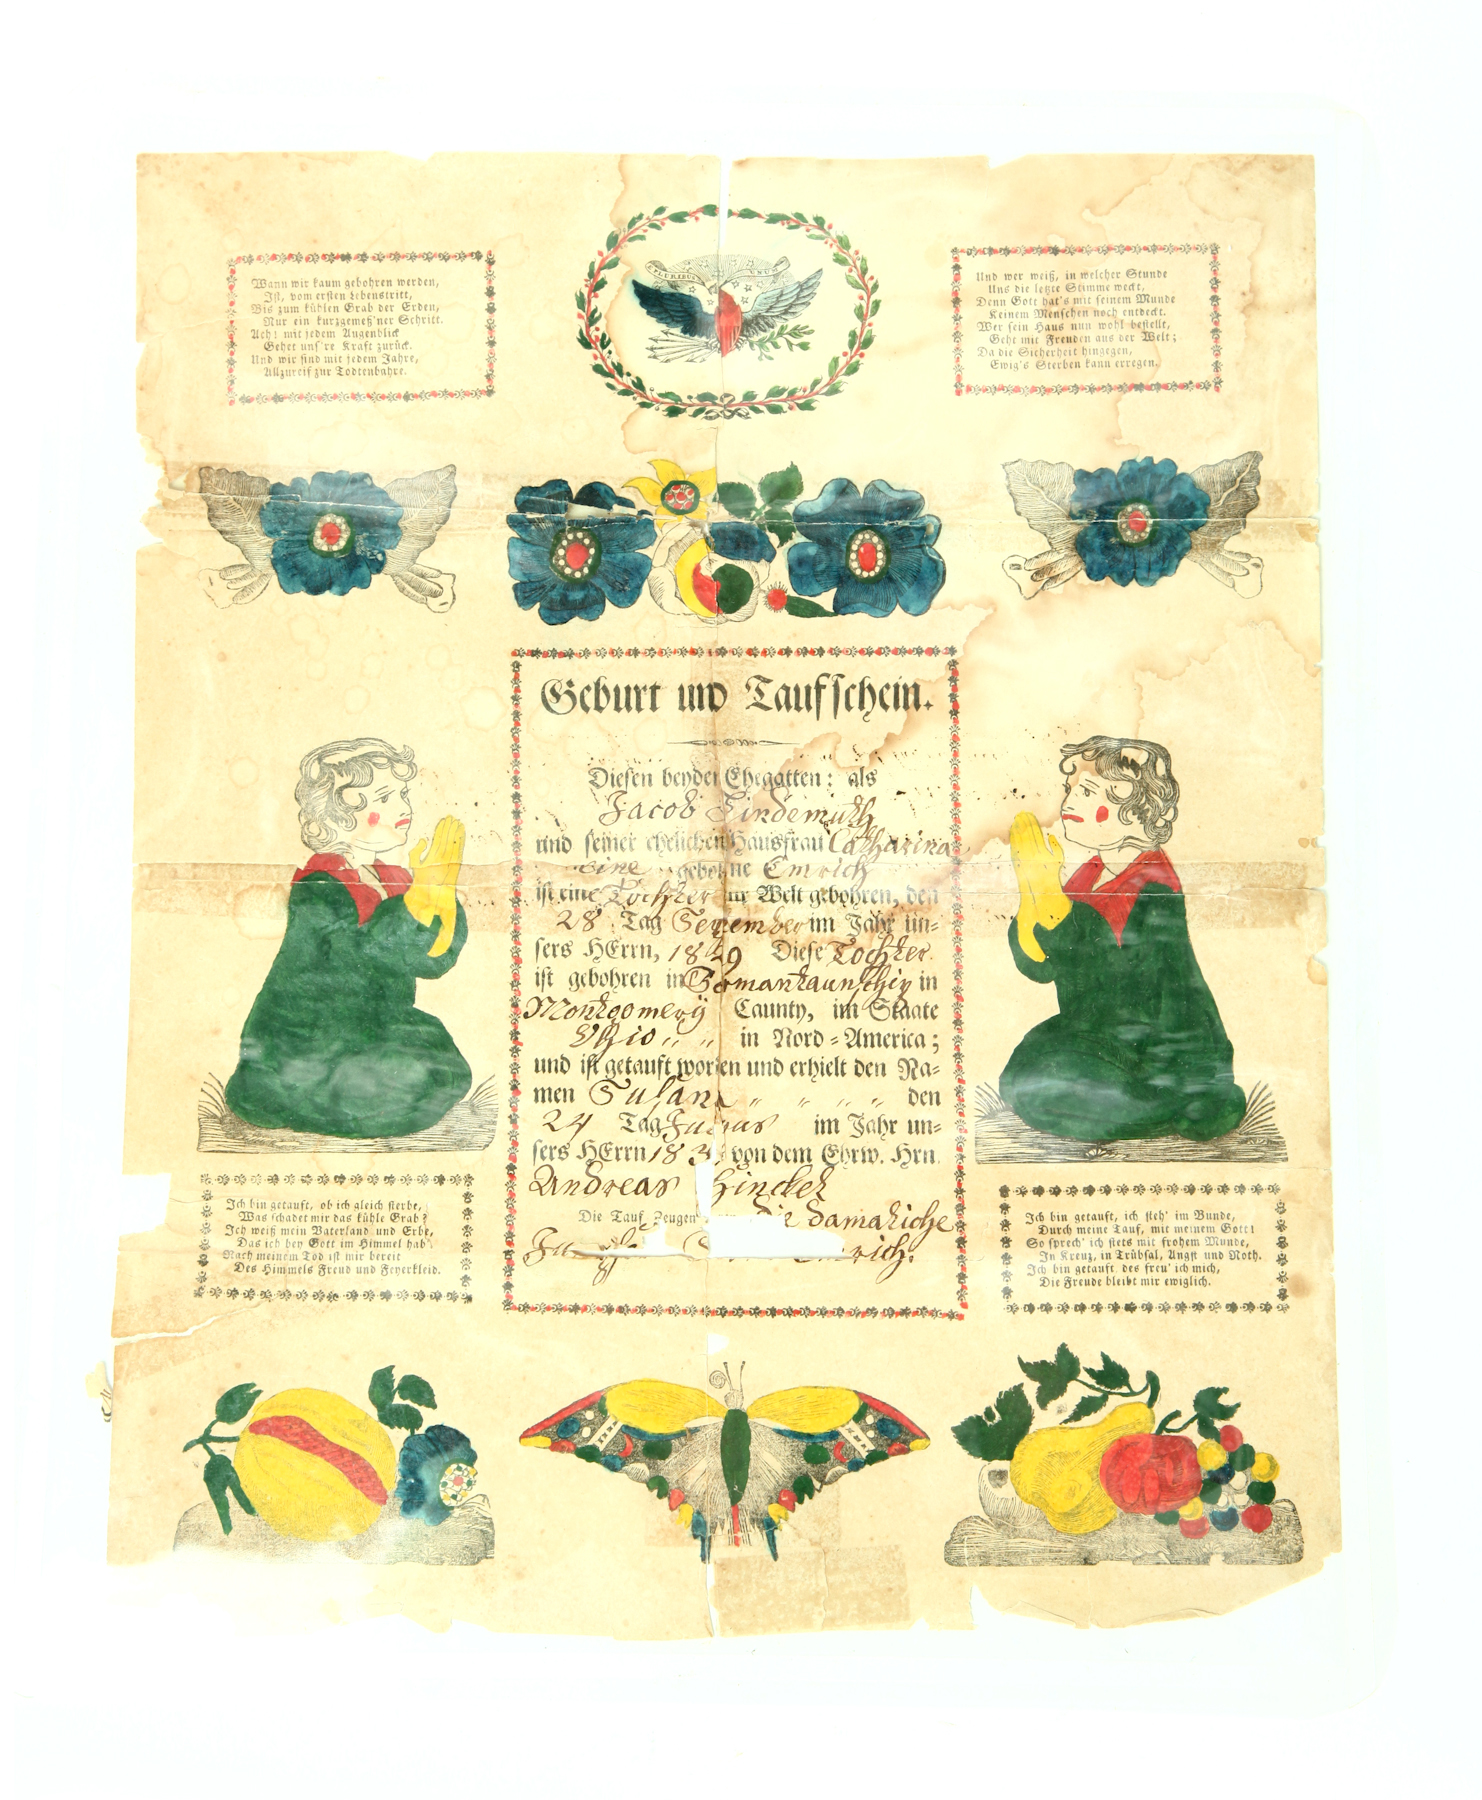 E PLURIBUS UNUM
Wann wir kaum gebohren werden,
Ist, vom ersten Lebenstritt,
Bis zum kühlen Grab der Erden,
Nur ein kurzgemeß'ner Schritt.
Ach! mit jedem Augenblick
Gehet uns're Kraft zurück.
Und wir sind mit jedem Jahre,
Allzureif zur Todtenbahre.
Und wer weiß, in welcher Stunde
Uns die letzte Stimme weckt,
Denn Gott hat's mit seinem Munde
Keinem Menschen noch entdeckt.
Wer sein Haus nun wohl bestellt,
Geht mit Freuden aus der Welt;
Da die Sicherheit hingegen,
Ewig's Sterben kann erregen.
Geburt und Taufschein.
Diesen beyden Ehegatten: als
Jacob Lindemuth
und seiner ehelichen Hausfrau Catharina
eine gebohrne Emrich
ist eine Tochter zur Welt gebohren, den
28 Tag September im Jahr un=
sers HErrn, 1829 Diese Tochter
ist gebohren in in
Montgomery Caunty, im Staate
Ohio " " in Nord=America;
und ist getauft worden und erhielt den Na=
men Susana " " " " den
24 Tag im Jahr un=
sers HErrn 183 von dem Ehrw. Hrn.
Andreas Hinckel
Die Tauf Zeugen die damahliche
Emrich.
Ich bin getauft, ob ich gleich sterbe,
Was schadet mir das kühle Grab?
Ich weiß mein Vaterland und Erbe,
Das ich bey Gott im Himmel hab'
Nach meinem Tod ist mir bereit
Des Himmels Freud und Feyerkleid.
Ich bin getauft, ich steh' im Bunde,
Durch meine Tauf, mit meinem Gott!
So sprech' ich stets mit frohem Munde,
In Kreuz, in Trübsal, Angst und Noth.
Ich bin getauft des freu' ich mich,
Die Freude bleibt mir ewiglich.